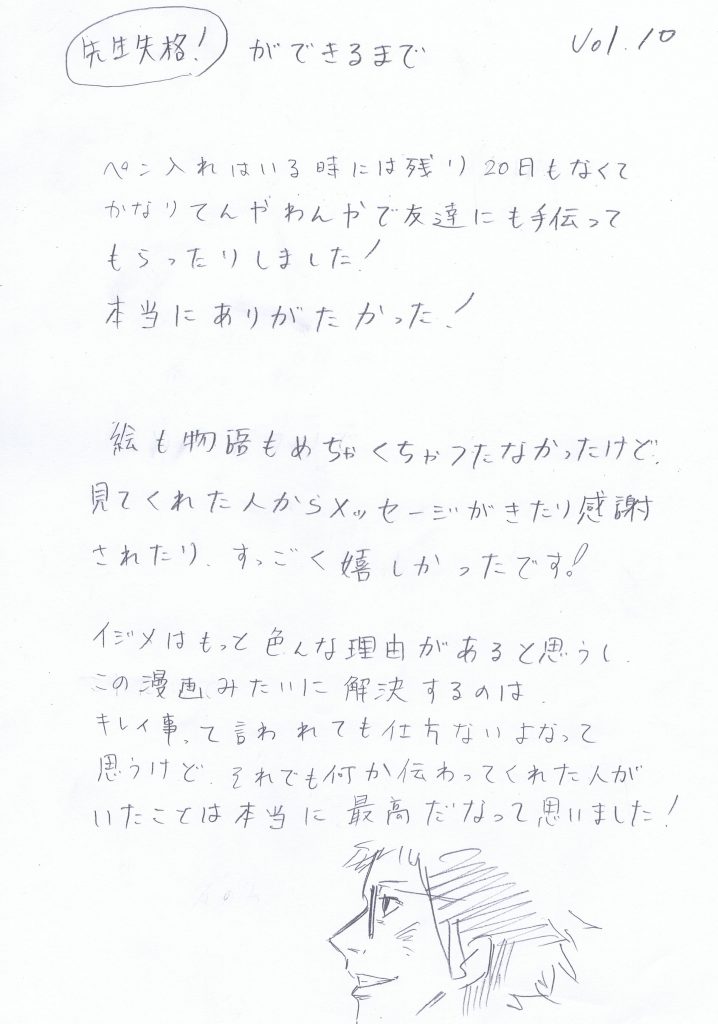 先生失格! ができるまで Vol.10
ペン入れはいる時には残り20日もなくて
かなりてんやわんやで友達にも手伝って
もらったりしました!
本当にありがたかった!
絵も物語もめちゃくちゃつたなかったけど、
見てくれた人からメッセージがきたり感謝
されたり、すっごく嬉しかったです!
イジメはもっと色んな理由があると思うし、
この漫画みたいに解決するのは、
キレイ事って言われても仕方ないよなって
思うけど、それでも何か伝わってくれた人が
いたことは本当に最高だなって思いました!